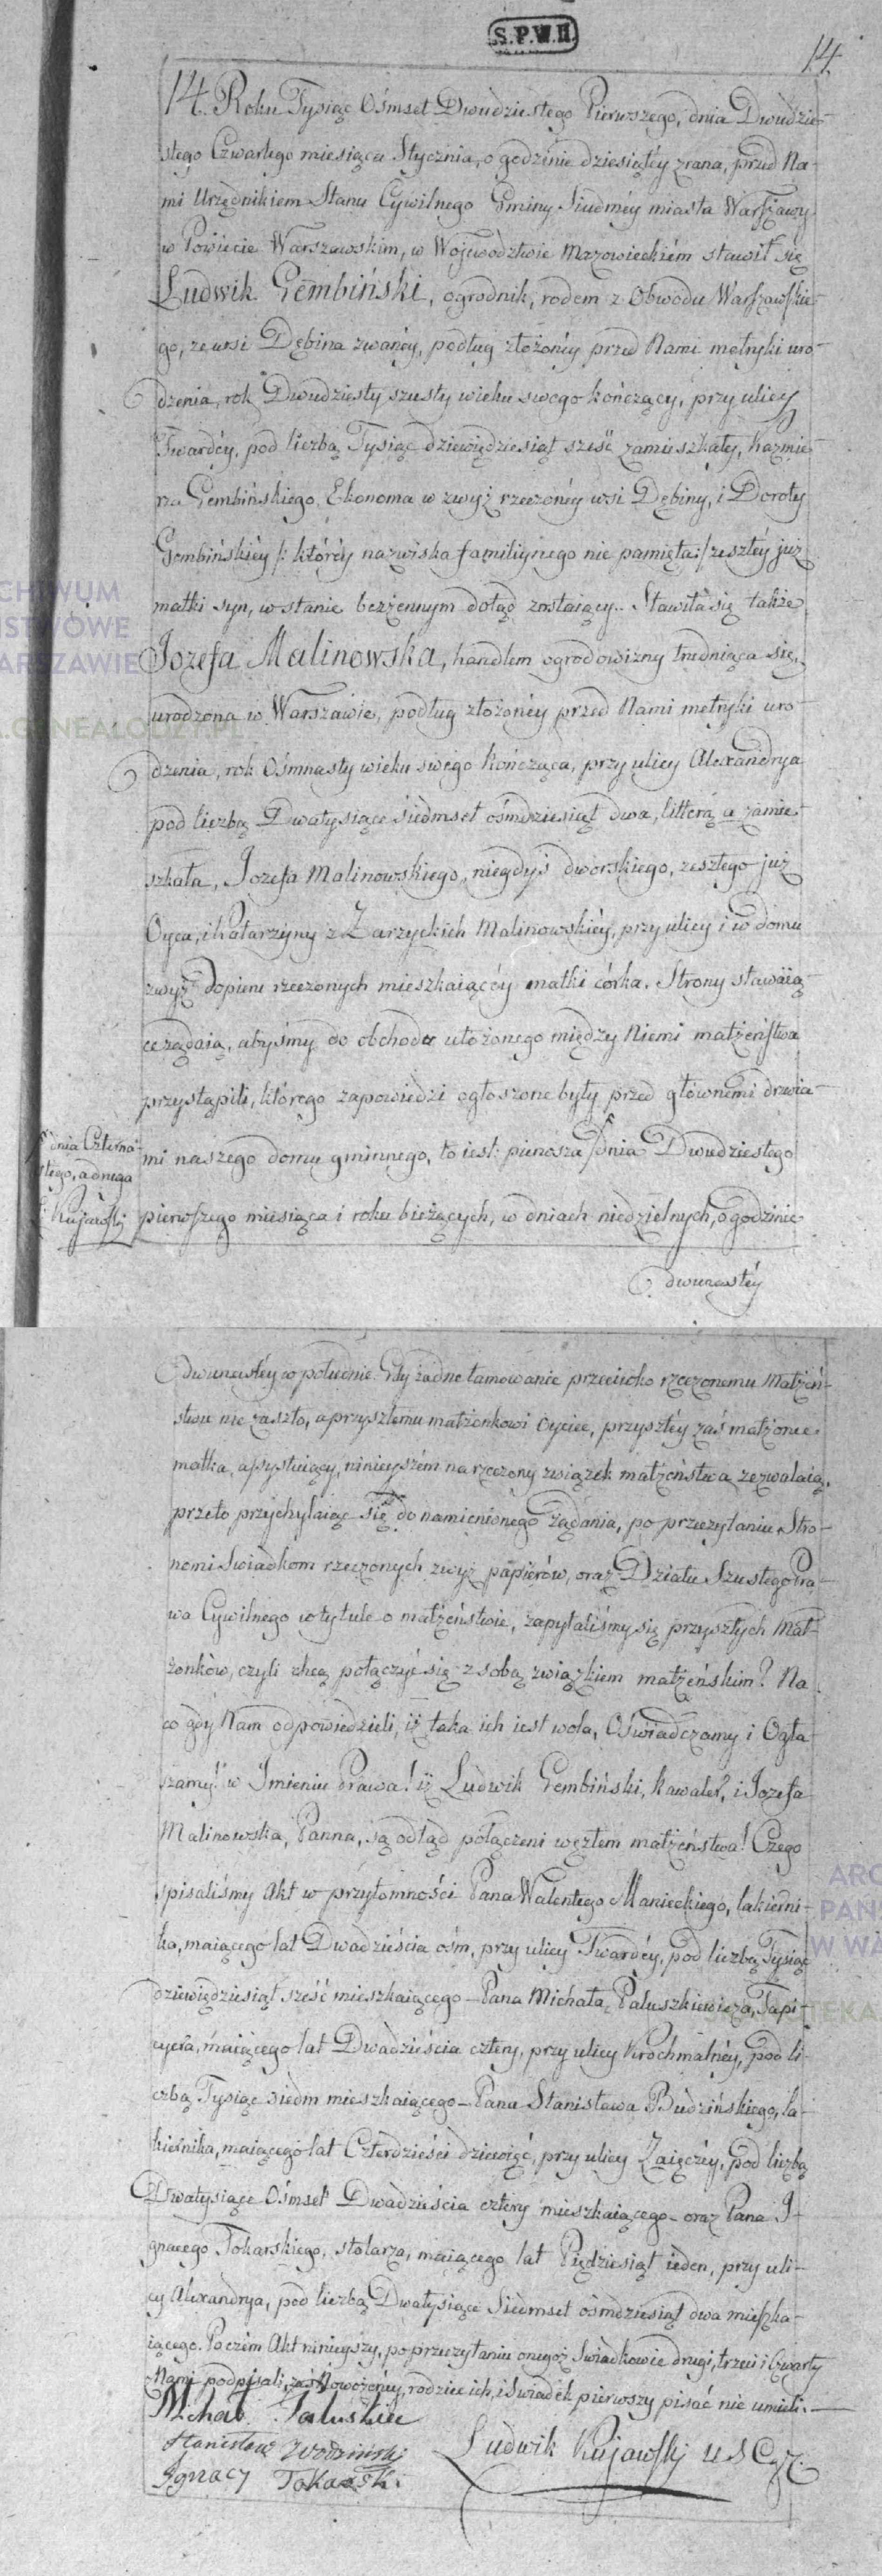 S.P.W.H.
14
14. Roku Tysiąc Ośmset Dwudziestego Pierwszego, dnia Dwudzie-
stego Czwartego miesiąca Stycznia, o godzinie dziesiątéy zrana, przed Na-
mi Urzędnikiem Stanu Cywilnego Gminy Siudméy miasta Warszawy
w Powiecie Warszawskim, w Woiewodztwie Mazowieckiém stawił się
Ludwik Gembiński, ogrodnik, rodem z Obwodu Warszawskie-
go, ze wsi Dębina zwanéy, podług złożonéy przed Nami metryki uro-
dzenia, rok Dwudziesty szusty wieku swego kończący, przy ulicy
Twardéy, pod liczbą Tysiąc dziewięćdziesiąt sześć zamieszkały, Kazmie-
rza Gembińskiego Ekonoma w zwyż rzeczonéy wsi Dębiny, i Doroty
Gembińskiéy /: któréy nazwiska familiynego nie pamięta :/ zeszłéy już
matki syn, w stanie bezżennym dotąd zostaiący.. Stawiła się także
Jozefa Malinowska, handlem ogrodowizny trudniąca się,
urodzona w Warszawie, podług złożonéy przed Nami metryki uro-
dzenia, rok Ośmnasty wieku swego kończąca, przy ulicy Alexandrya
pod liczbą Dwatysiące siedmset ośmdziesiąt dwa, litterą a zamie-
szkała, Jozefa Malinowskiego, niegdyś dworskiego, zeszłego już
Oyca, i Katarzyny z Zarzyckich Malinowskiéy, przy ulicy i w domu
zwyż dopiero rzeczonych mieszkaiącéy matki córka. Strony stawaią-
ce żądaią, abyśmy do obchodu ułożonego między Niemi małżeństwa
przystąpili, którego zapowiedzi ogłoszone były przed głównemi drzwia-
mi naszego domu gminnego, to iest: pierwsza dnia Dwudziestego
pierwszego miesiąca i roku bieżących, w dniach niedzielnych, o godzinie
dnia Czterna-
stego, a druga
Kujawski
dwunastéy
dwunastéy w południe. Gdy żadne tamowanie przeciwko rzeczonemu Małżeń-
stwu nie zaszło, a przyszłemu małżonkowi Oyciec, przyszłéy zaś małżonce
matka, assystuiący, ninieyszém na rzeczony związek małżeństwa zezwalaią,
przeto przychylaiąc się do namienionego żądania, po przeczytaniu Stro-
nom i Swiadkom rzeczonych zwyż papierów, oraz Działu Szustego Pra-
wa Cywilnego w tytule o małżeństwie, zapytaliśmy się przyszłych Mał-
żonków, czyli chcą połączyć się z sobą związkiem małżeńskim? Na
co gdy Nam odpowiedzieli, iż taka ich iest wola, Oświadczamy i Ogła-
szamy! w Imieniu Prawa! iż Ludwik Gembiński, Kawaler, i Jozefa
Malinowska, Panna, są odtąd połączeni węzłem małżeństwa! Czego
spisaliśmy Akt w przytomności Pana Walentego Manieckiego, lakierni-
ka, maiącego lat Dwadzieścia ośm, przy ulicy Twardéy, pod liczbą Tysiąc
dziewięćdziesiąt sześć mieszkaiącego - Pana Michała Paluszkiewicza, Tapi-
cyera, maiącego lat Dwadzieścia cztery, przy ulicy Krochmalnéy, pod li-
czbą Tysiąc siedm mieszkaiącego - Pana Stanisława Budzińskiego, la-
kiernika, maiącego lat Czterdzieści dziewięć, przy ulicy Zaięczéy, pod liczbą
Dwatysiące Ośmset Dwadzieścia cztery mieszkaiącego - oraz Pana I-
gnacego Tokarskiego, stolarza, maiącego lat Pięćdziesiąt ieden, przy uli-
cy Alexandrya, pod liczbą Dwatysiące Siedmset ośmdziesiąt dwa mieszka-
iącego. Poczém Akt ninieyszy, po przeczytaniu onegoż Swiadkowie drugi, trzeci i Czwarty
z Nami podpisali, zaś Nowożeńcy, rodzice ich, i Swiadek pierwszy pisać nie umieli.
Michał
Stanisław
Ignacy Tokarski
Ludwik Kujawski U S C
ARCHIWUM
PAŃSTWOWE
W WARSZAWIE
GENEALODZY.PL